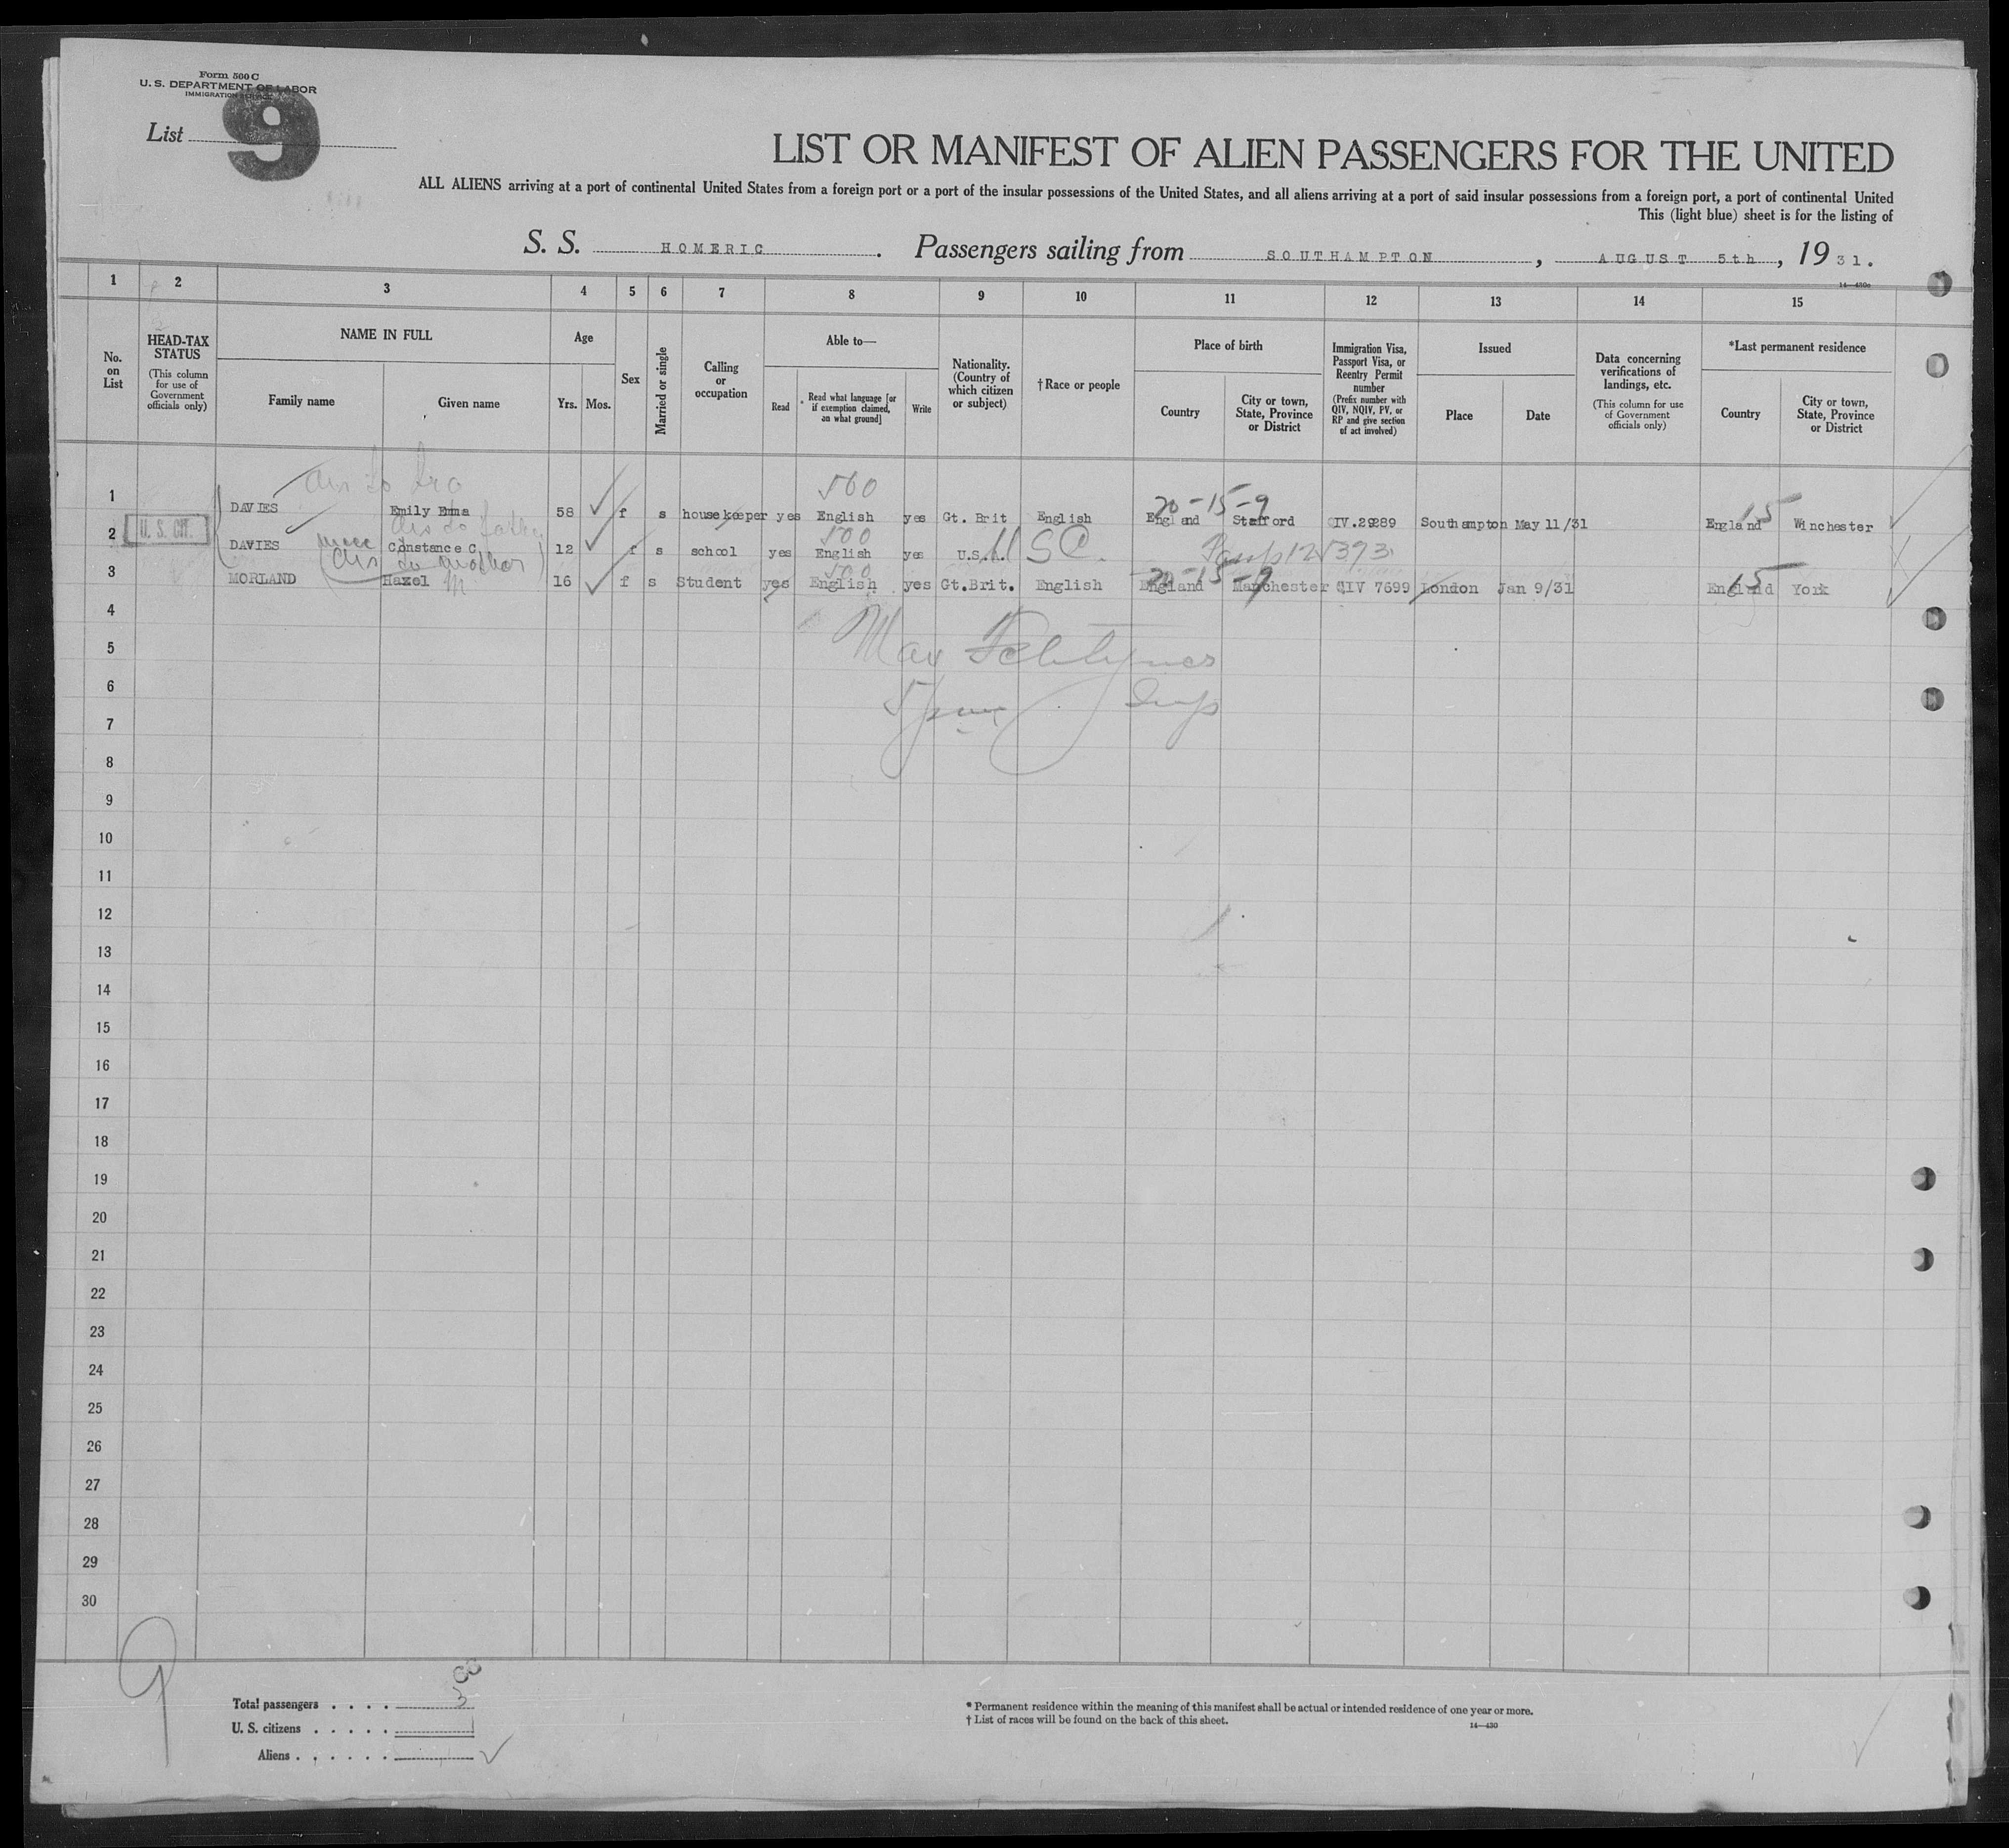 Form 500 C
U. S. DEPARTMENT OF LABOR
IMMIGRATION SERVICE
List 9
LIST OR MANIFEST OF ALIEN PASSENGERS FOR THE UNITED
ALL ALIENS arriving at a port of continental United States from a foreign port or a port of the insular possessions of the United States, and all aliens arriving at a port of said insular possessions from a foreign port, a port of continental United
This (light blue) sheet is for the listing of
S. S. HOMERIC. Passengers sailing from SOUTHAMPTON, AUGUST 5th, 1931.
14—430c
1 2 3 4 5 6 7 8 9 10 11 12 13 14 15
No. on List
HEAD-TAX STATUS (This column for use of Government officials only)
NAME IN FULL
Family name
Given name
Age
Yrs. Mos.
Sex
Married or single
Calling or occupation
Able to—
Read
Read what language [or if exemption claimed, on what ground]
Write
Nationality. (Country of which citizen or subject)
†Race or people
Place of birth
Country
City or town, State, Province or District
Immigration Visa, Passport Visa, or Reentry Permit number (Prefix number with QIV, NQIV, PV, or RP and give section of act involved)
Issued
Place
Date
Data concerning verifications of landings, etc. (This column for use of Government officials only)
*Last permanent residence
Country
City or town, State, Province or District
500 20-15-9 15
1 DAVIES Emily Emma 58 f s housekeeper yes English yes Gt. Brit English England Stafford QIV.29289 Southampton May 11/31 England Winchester
500
2 U. S. CIT. DAVIES niece Constance C. 12 f s school yes English yes U.S.A. USC 125393
to mother 500 20-15-9 15
3 MORLAND Hazel M 16 f s Student yes English yes Gt.Brit. English England Manchester QIV 7699 London Jan 9/31 England York
4
5 Max
6 Insp
7
8
9
10
11
12
13
14
15
16
17
18
19
20
21
22
23
24
25
26
27
28
29
30
9
Total passengers . . . . 3
U. S. citizens . . . . . 1
Aliens . . . . . .
* Permanent residence within the meaning of this manifest shall be actual or intended residence of one year or more.
† List of races will be found on the back of this sheet.
14—430